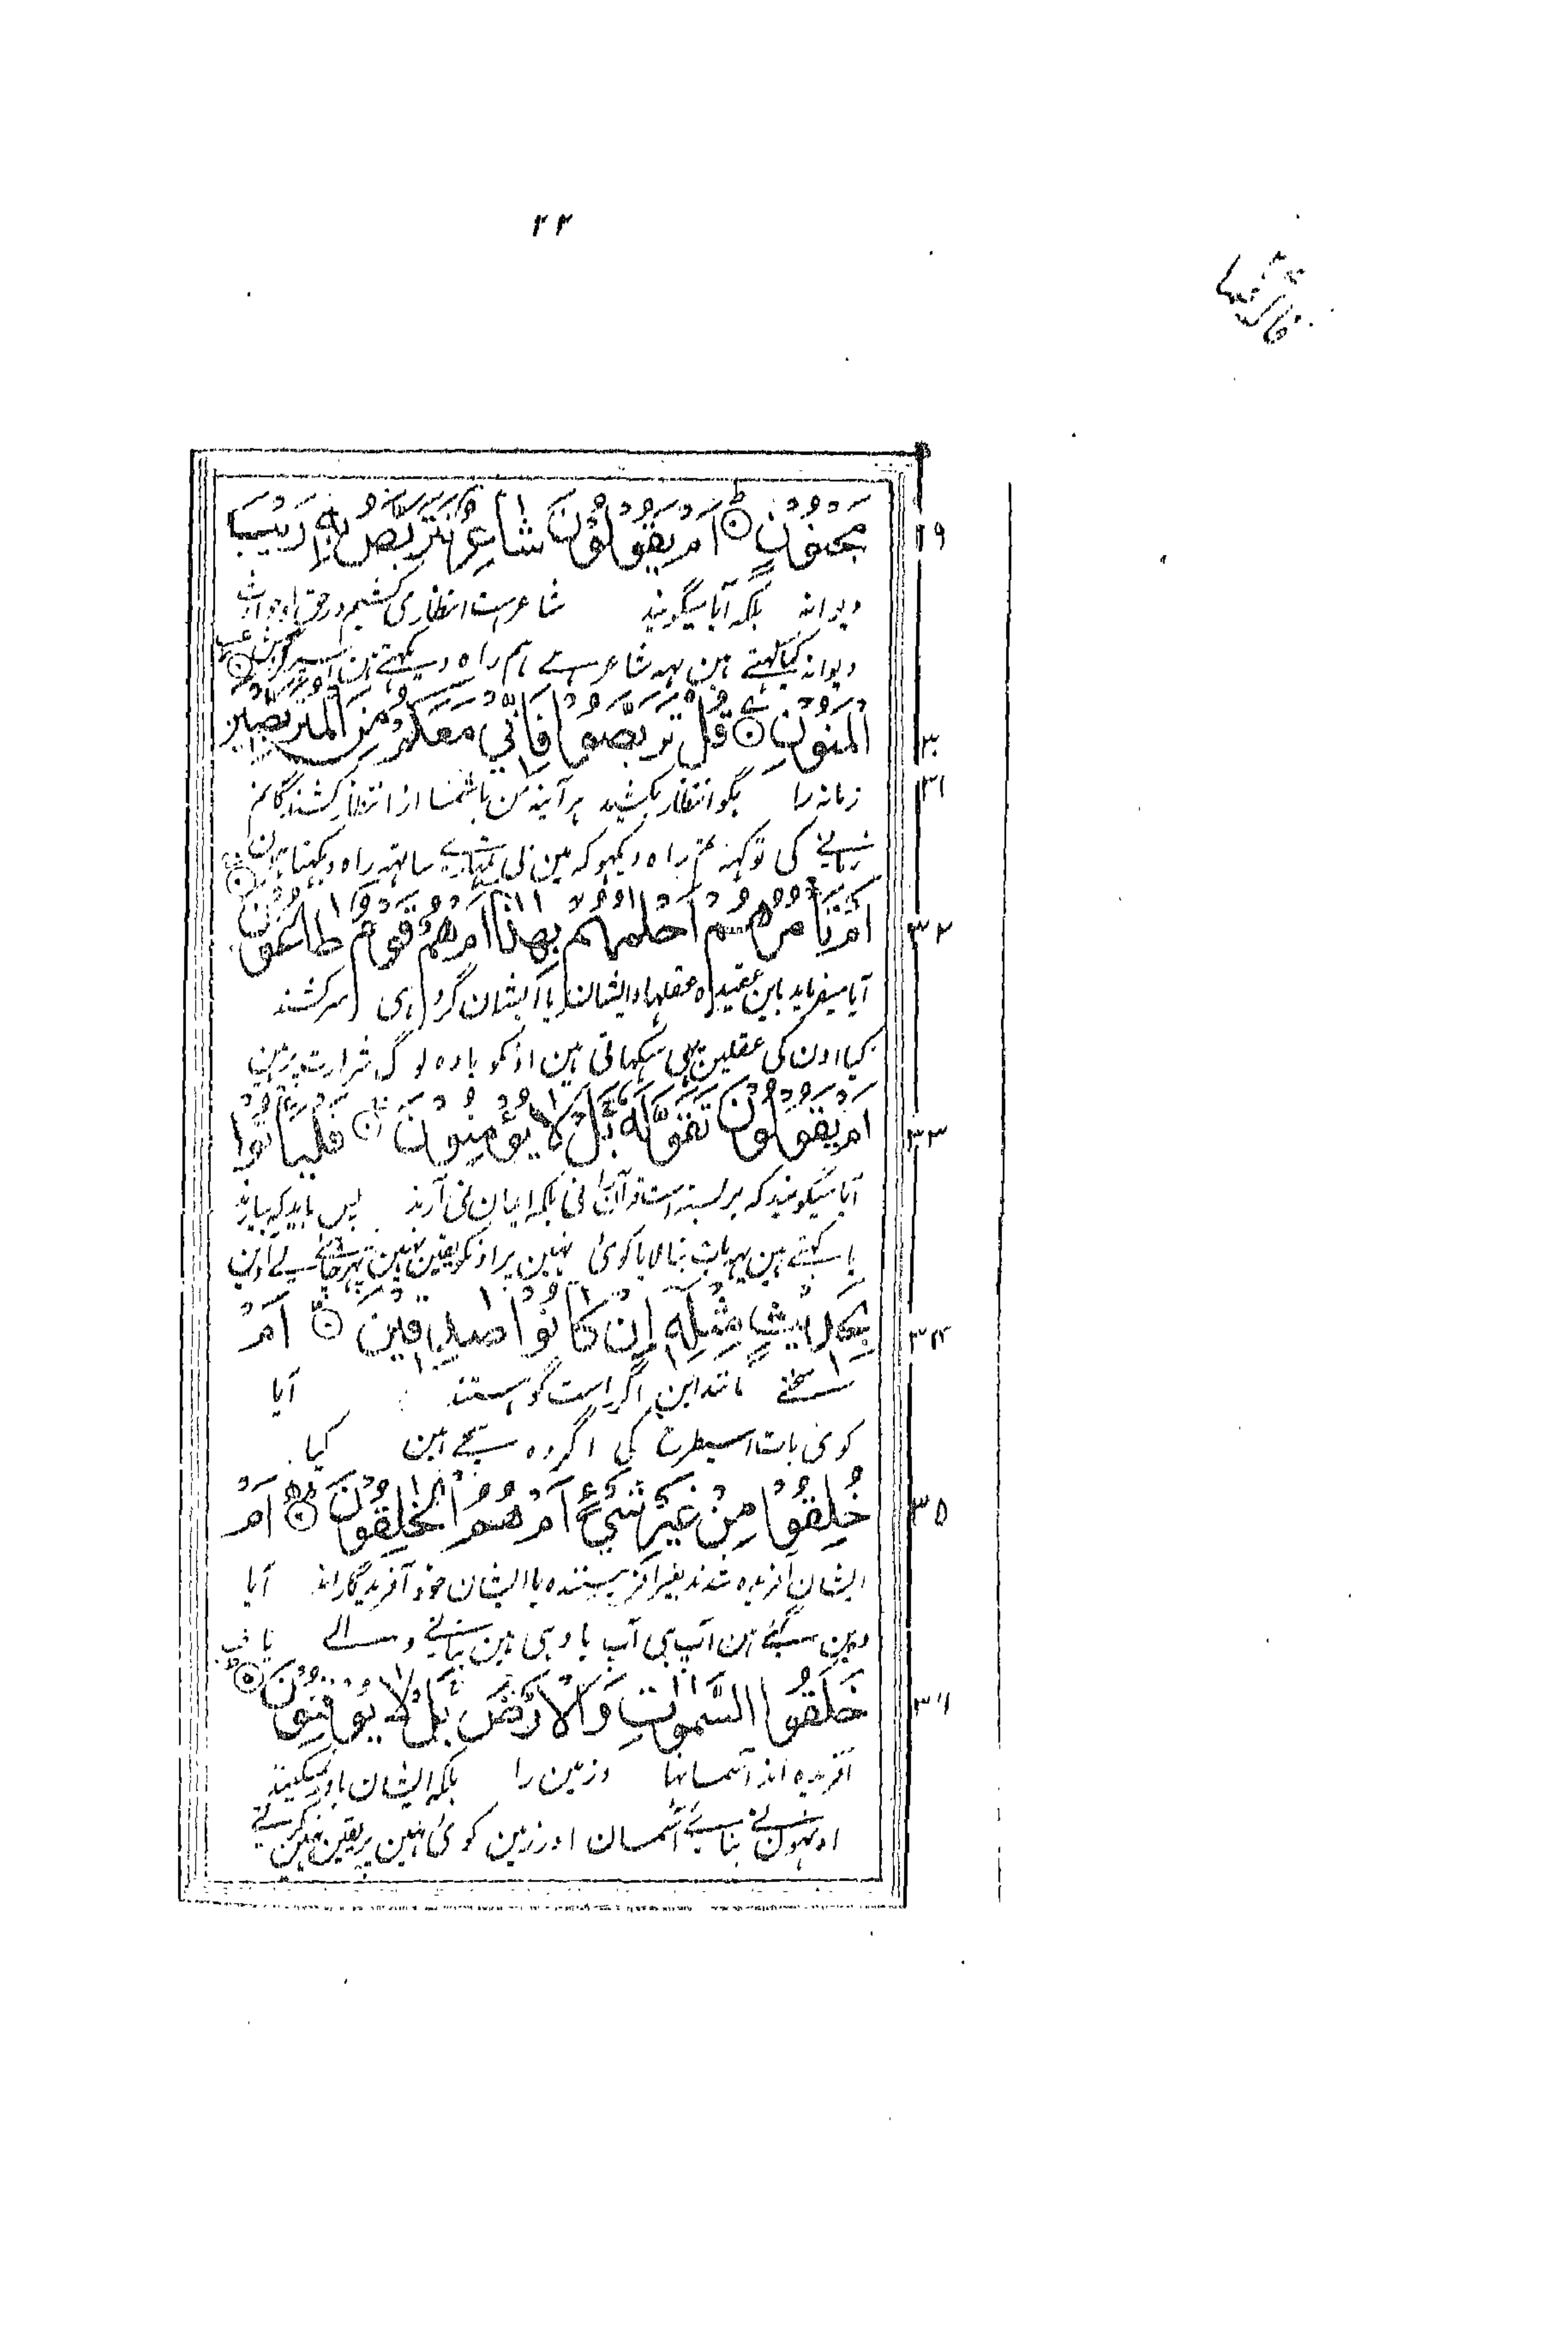 ۲۲
مَجْنُوْنٍ ۞ اَمْ يَقُوْلُوْنَ شَاعِرٌ نَّتَرَبَّصُ بِهٖ رَيْبَ
۲۹
دیوانہ بلکہ آیا میگویند شاعرست انتظار می کشیم در حق او حوادث
دیوانہ کیا کہتے ہین یہہ شاعر ہے ہم راہ دیکہتے ہین
الْمَنُوْنِ ۞ قُلْ تَرَبَّصُوْا فَاِنِّيْ مَعَكُمْ مِّنَ الْمُتَرَبِّصِيْنَ ۞
۳۰
۳۱
زمانہ را بگو انتظار بکشید ہر آینہ من باشما از انتظار کشندگانم
زمانے کی تو کہہ تم راہ دیکہو کہ مین بہی تمہارے ساتہہ راہ دیکہتا ہون
اَمْ تَاْمُرُهُمْ اَحْلَامُهُمْ بِهٰذَا اَمْ هُمْ قَوْمٌ طَاغُوْنَ ۞
۳۲
آیا میفرماید باین عقیدہ عقلہاء ایشان یا ایشان گروہی سرکشند
کیا اون کی عقلین یہی سکہاتی ہین اونکو یا وہ لوگ شرارت پر ہین
اَمْ يَقُوْلُوْنَ تَقَوَّلَهٗ بَلْ لَّا يُؤْمِنُوْنَ ۞ فَلْيَاْتُوْا
۳۳
آیا میگویند کہ بربستہ است قرآن را نی بلکہ ایمان نمی آرند پس باید کہ بیارند
یا کہتے ہین یہہ بات بنا لایا کوئی نہین پر اونکو یقین نہین پہر چاہئے لے آوین
بِحَدِيْثٍ مِّثْلِهٖ اِنْ كَانُوْا صٰدِقِيْنَ ۞ اَمْ
۳۴
سخنے مانند این اگر راست گو ہستند آیا
کوئی بات اسیطرح کی اگر وہ سچے ہین کیا
خُلِقُوْا مِنْ غَيْرِ شَيْءٍ اَمْ هُمُ الْخٰلِقُوْنَ ۞ اَمْ
۳۵
ایشان آفریدہ شدند بغیر آفرینندہ یا ایشان خود آفریدگارانند آیا
وہین گئے ہین آپ ہی آپ یا وہی ہین بنانے والے یا
خَلَقُوا السَّمٰوٰتِ وَالْاَرْضَ بَلْ لَّا يُوْقِنُوْنَ ۞
۳۶
آفریدہ اند آسمانہا و زمین را بلکہ ایشان باور نمیکنند
اونہون نے بنائے آسمان اور زمین کوئی نہین پر یقین نہین کرتے